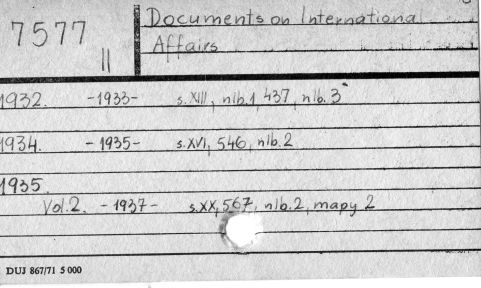 7577
II
Documents on International
Affairs
1932. -1933- s. XIII, nlb.1, 437, nlb. 3
1934. -1935- s. XVI, 546, nlb. 2
1935.
Vol. 2. -1937- s. XX, 567, nlb. 2, mapy 2
DUJ 867/71 5 000